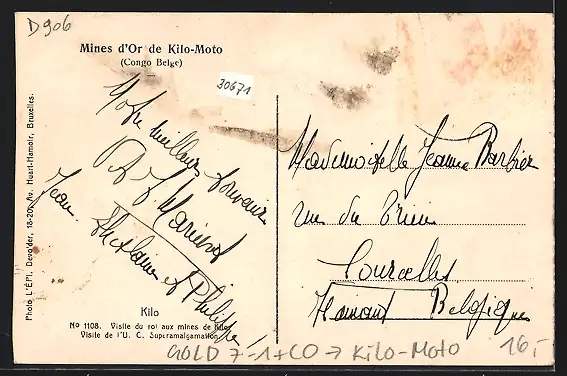 D906
Mines d'Or de Kilo-Moto
(Congo Belge)
30671
Photo L'Epi, Devolder, 18-20, Av. Huart-Hamoir, Bruxelles.
Notre meilleur souvenir
Jean. Ghislaine et Philippe!
Mademoiselle Jeanne Barbier
rue du Trieu
Courcelles
Hainaut Belgique
Kilo
No 1108. Visite du roi aux mines de Kilo
Visite de l'U. C. Superamalgamation
GOLD 7-1+CO → Kilo-Moto
16,-